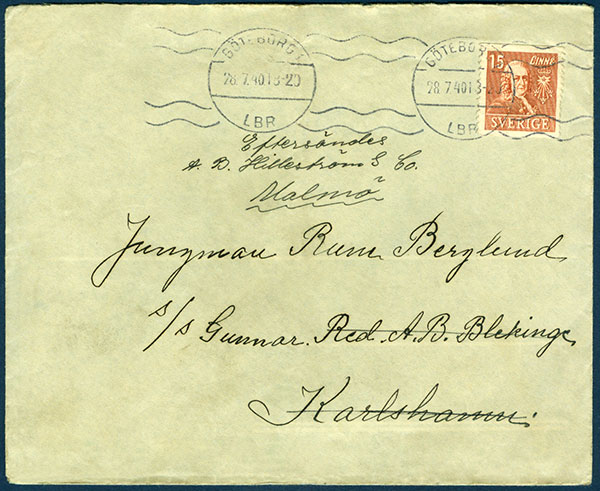 GÖTEBORG 1
28.7.4013-20
LBR
GÖTEBORG
28.7.4013-20
LBR
15 LINNÉ
SVERIGE
Eftersändes
A. B. Hilleström & Co.
Malmö
Jungman Rune Berglund
s/s Gunnar. Red. A.B. Blekinge,
Karlshamn.